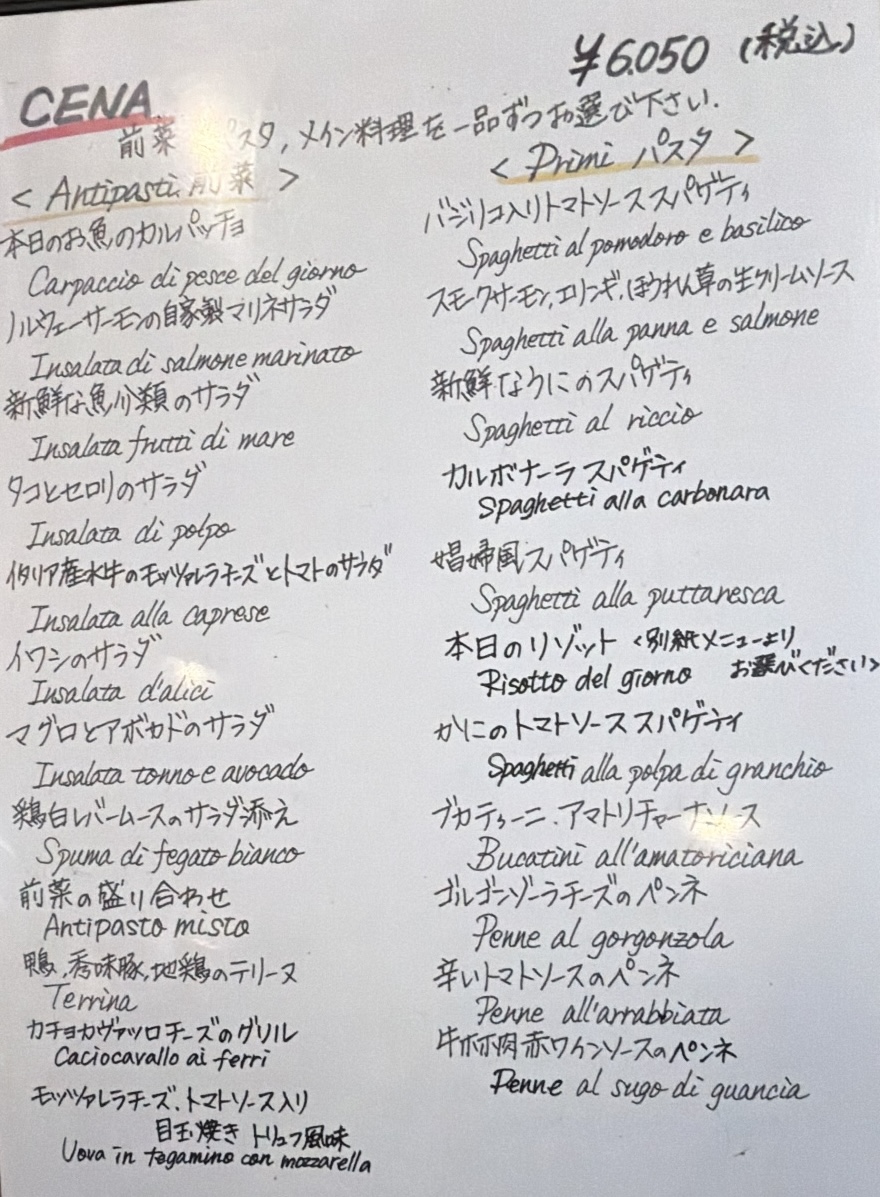 ¥6.050 (税込)
CENA
前菜 パスタ, メイン料理を一品ずつお選び下さい.
< Antipasti 前菜 >
本日のお魚のカルパッチョ
Carpaccio di pesce del giorno
ノルウェーサーモンの自家製マリネサラダ
Insalata di salmone marinato
新鮮な魚介類のサラダ
Insalata frutti di mare
タコとセロリのサラダ
Insalata di polpo
イタリア産水牛のモッツァレラチーズとトマトのサラダ
Insalata alla caprese
イワシのサラダ
Insalata d'alici
マグロとアボカドのサラダ
Insalata tonno e avocado
鶏白レバームースのサラダ添え
Spuma di fegato bianco
前菜の盛り合わせ
Antipasto misto
鴨,香味豚,地鶏のテリーヌ
Terrina
カチョカヴァッロチーズのグリル
Caciocavallo ai ferri
モッツァレラチーズ、トマトソース入り
目玉焼き トリュフ風味
Uova in tegamino con mozzarella
< Primi パスタ >
バジリコ入りトマトソーススパゲティ
Spaghetti al pomodoro e basilico
スモークサーモン,エリンギ,ほうれん草の生クリームソース
Spaghetti alla panna e salmone
新鮮なうにのスパゲティ
Spaghetti al riccio
カルボナーラ スパゲティ
Spaghetti alla carbonara
娼婦風スパゲティ
Spaghetti alla puttaresca
本日のリゾット <別紙メニューより
お選びください>
Risotto del giorno
かにのトマトソーススパゲティ
Spaghetti alla polpa di granchio
ブカティーニ.アマトリチャーナソース
Bucatini all'amatoriciana
ゴルゴンゾーラチーズのペンネ
Penne al gorgonzola
辛いトマトソースのペンネ
Penne all'arrabbiata
牛ホホ肉赤ワインソースのペンネ
Penne al sugo di guancia